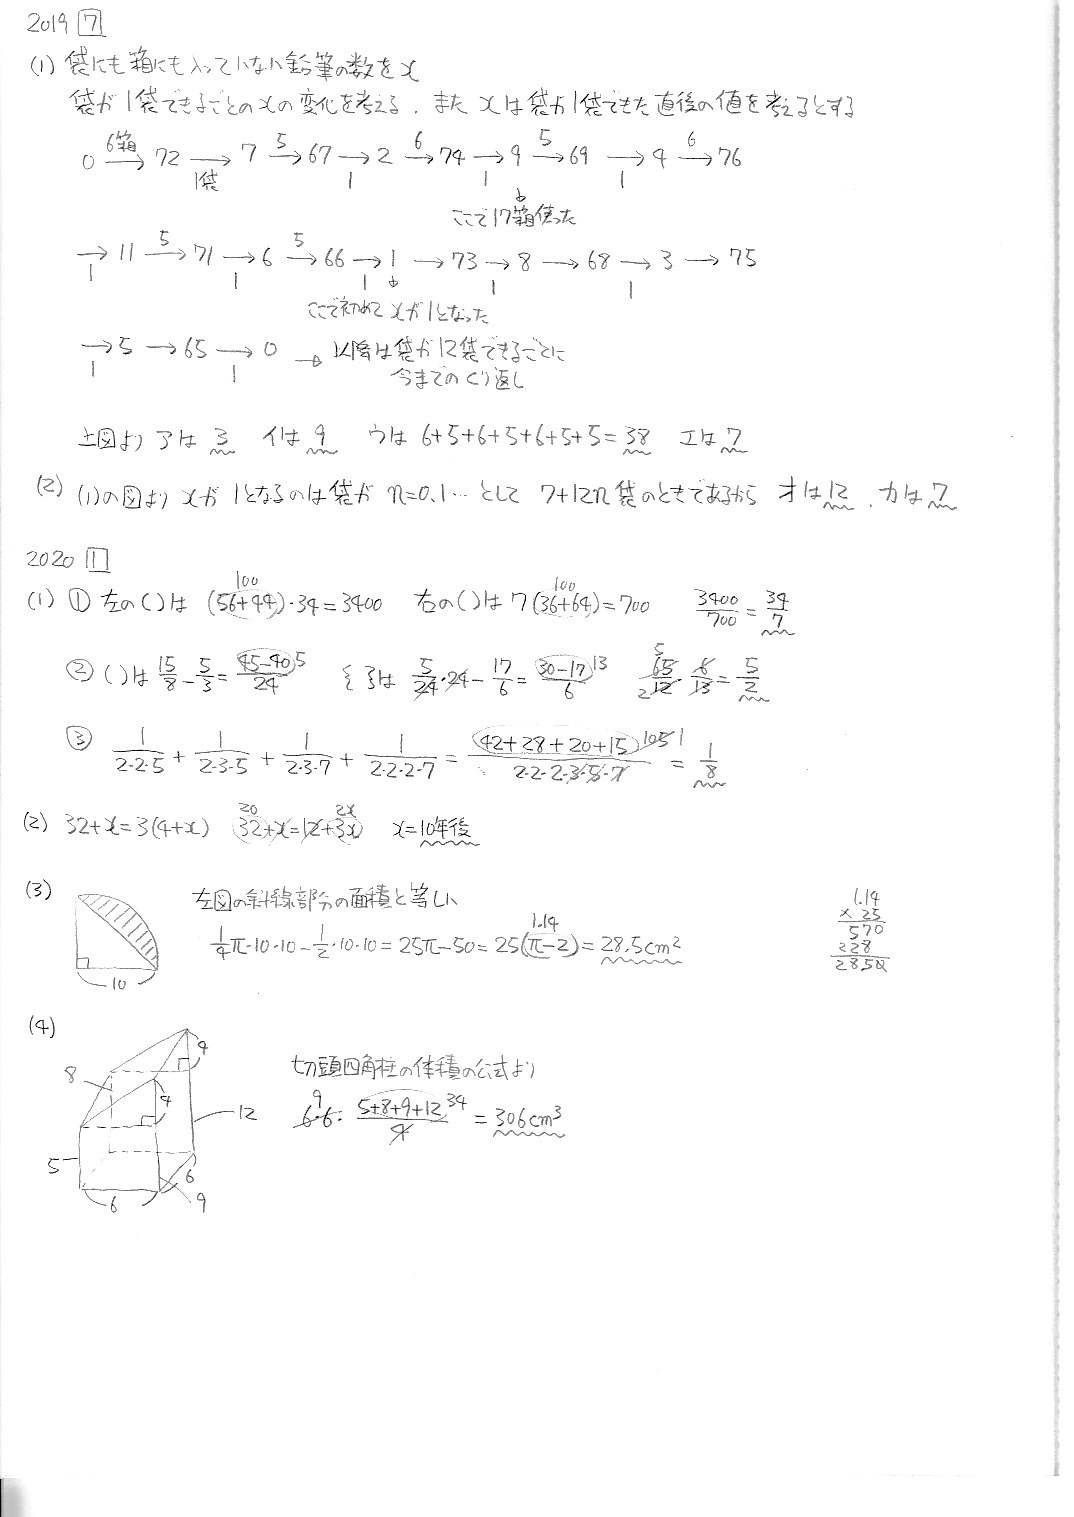 2019 7
(1) 袋にも箱にも入っていない鉛筆の数をx
袋が1袋できるごとのxの変化を考える. また xは袋が1袋できた直後の値を考えるとする
0 →(6箱) 72 →(1袋) 7 →(5) 67 →(1) 2 →(6) 74 →(1) 9 →(5) 69 →(1) 4 →(6) 76
ここで17箱使った
→(1) 11 →(5) 71 →(1) 6 →(5) 66 →(1) 1 → 73 →(1) 8 → 68 →(1) 3 → 75
ここで初めてxが1となった
→(1) 5 → 65 →(1) 0 → 以降は袋が12袋できるごとに
今までのくり返し
上図より アは 3 イは 9 ウは 6+5+6+5+6+5+5=38 エは 7
(2) (1)の図より xが1となるのは袋が n=0.1… として 7+12n 袋のときであるから オは12 . カは7
2020 1
(1) ① 左の( )は (56+44)・34=3400 右の( )は 7(36+64)=700 3400/700=34/7
100 100
② ( )は 15/8-5/3=(45-40)/24 5 { }は 5/24・24-17/6=(30-17)/6 13 65/12・6/13=5/2
5 2
③ 1/(2・2・5)+1/(2・3・5)+1/(2・3・7)+1/(2・2・2・7)=(42+28+20+15)/(2・2・2・3・5・7) 105 1 =1/8
(2) 32+x=3(4+x) 32+x=12+3x x=10年後
20 2x
(3) 左図の斜線部分の面積と等しい
1/4π・10・10-1/2・10・10=25π-50=25(π-2)=28.5cm²
1.14
10
1.14
×25
570
228
28.50
(4) 切頭四角柱の体積の公式より
6・6・(5+8+9+12)/4=306cm³
9 34
8 4 4 12 5 6 6 9